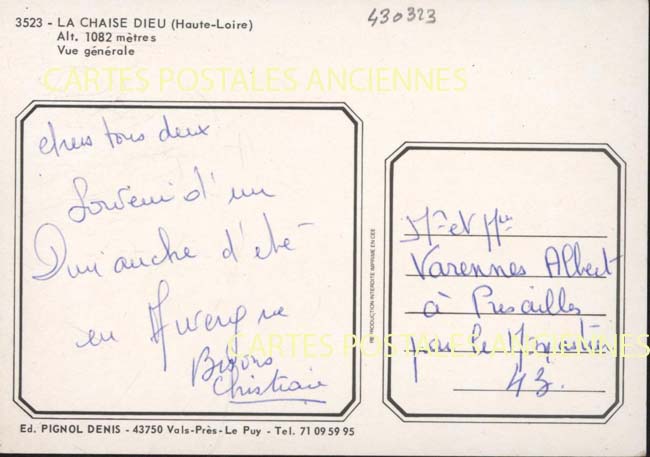 3523 - LA CHAISE DIEU (Haute-Loire)
Alt. 1082 mètres
Vue générale
430323
CARTES POSTALES ANCIENNES
chers tous deux
Souvenir d'un
Dimanche d'été
en Auvergne
Bisous
Christiane
REPRODUCTION INTERDITE IMPRIME EN CEE
Mr et Mme
Varennes Albert
à Présailles
par Le Monastier
43.
CARTES POSTALES ANCIENNES
Ed. PIGNOL DENIS - 43750 Vals-Près-Le Puy - Tel. 71 09 59 95